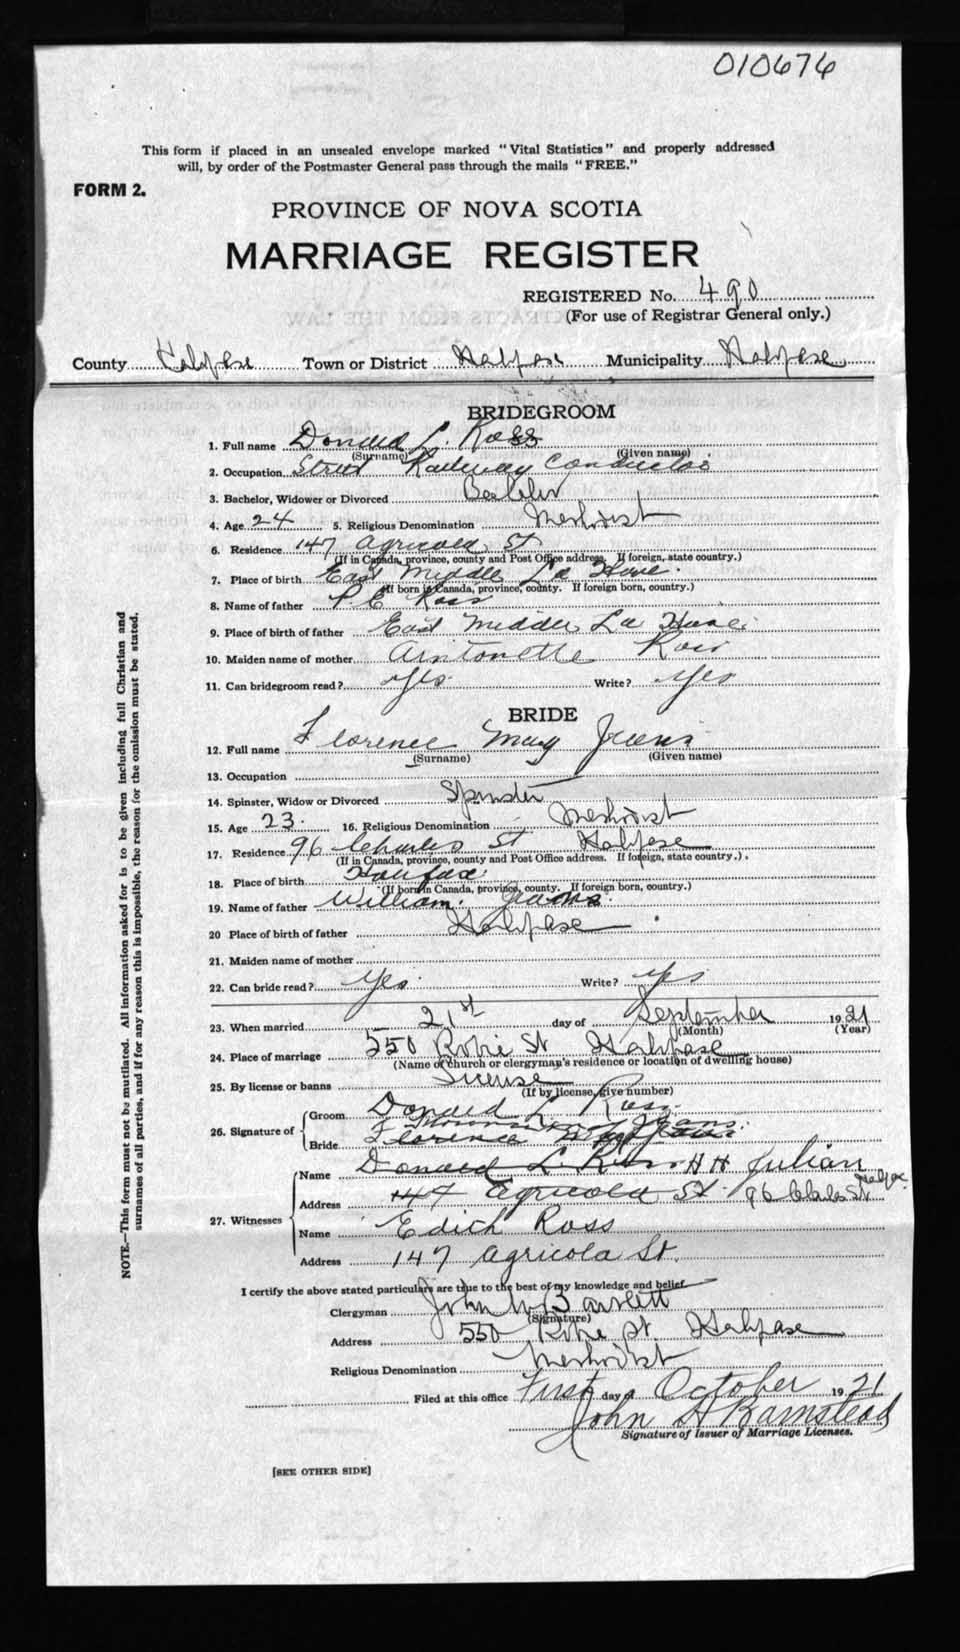 010676
This form if placed in an unsealed envelope marked "Vital Statistics" and properly addressed
will, by order of the Postmaster General pass through the mails "FREE."
FORM 2.
PROVINCE OF NOVA SCOTIA
MARRIAGE REGISTER
REGISTERED No. 490
(For use of Registrar General only.)
County Halifax Town or District Halifax Municipality Halifax
BRIDEGROOM
1. Full name Donald L. Ross
(Surname) (Given name)
2. Occupation Street Railway Conductor
3. Bachelor, Widower or Divorced Bachelor
4. Age 24 5. Religious Denomination Methodist
6. Residence 147 Agricola St
(If in Canada, province, county and Post Office address. If foreign, state country.)
7. Place of birth East Middle La Have.
(If born in Canada, province, county. If foreign born, country.)
8. Name of father P. E. Ross
9. Place of birth of father East Middle La Have
10. Maiden name of mother Antonette Ross
11. Can bridegroom read? Yes Write? Yes
BRIDE
12. Full name Florence May Jeans
(Surname) (Given name)
13. Occupation
14. Spinster, Widow or Divorced Spinster
15. Age 23. 16. Religious Denomination Methodist
17. Residence 96 Charles St Halifax
(If in Canada, province, county and Post Office address. If foreign, state country.)
18. Place of birth Halifax
(If born in Canada, province, county. If foreign born, country.)
19. Name of father William Jeans
20 Place of birth of father Halifax
21. Maiden name of mother
22. Can bride read? Yes Write? Yes
23. When married 21st day of September 1921
(Month) (Year)
24. Place of marriage 550 Robie St Halifax
(Name of church or clergyman's residence or location of dwelling house)
25. By license or banns License
(If by license, give number)
26. Signature of Groom Donald L. Ross
Bride Florence May Jeans
27. Witnesses
Name Donald L. Ross H H Julian
Address 147 Agricola St. 96 Charles St Halifax
Name Edith Ross
Address 147 Agricola St.
I certify the above stated particulars are true to the best of my knowledge and belief
Clergyman John W Bartlett
(Signature)
Address 550 Robie St Halifax
Religious Denomination Methodist
Filed at this office First day of October 1921
John H Barnstead
Signature of Issuer of Marriage Licenses.
[SEE OTHER SIDE]
NOTE.—This form must not be mutilated. All information asked for is to be given including full Christian and
surnames of all parties, and if for any reason this is impossible, the reason for the omission must be stated.